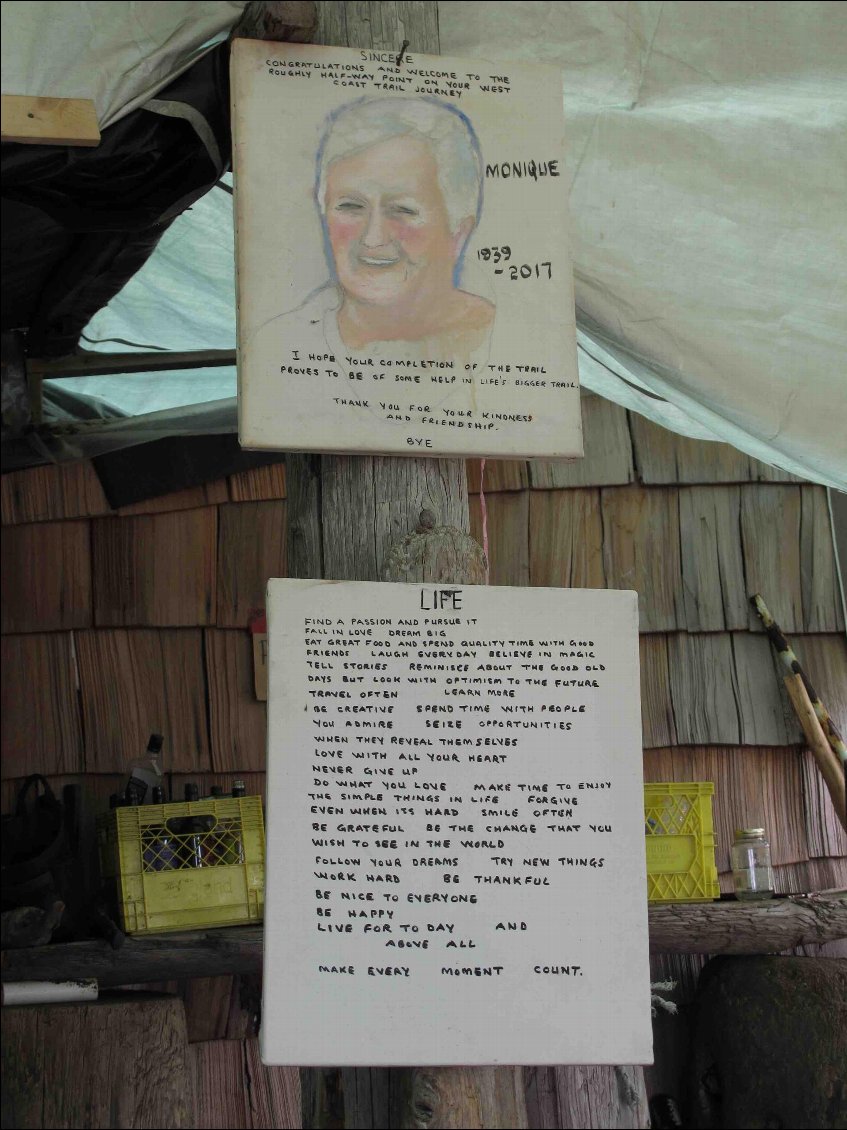 SINCERE
CONGRATULATIONS AND WELCOME TO THE
ROUGHLY HALF-WAY POINT ON YOUR WEST
COAST TRAIL JOURNEY
MONIQUE
1939
- 2017
I HOPE YOUR COMPLETION OF THE TRAIL
PROVES TO BE OF SOME HELP IN LIFE'S BIGGER TRAIL.
THANK YOU FOR YOUR KINDNESS
AND FRIENDSHIP.
BYE
LIFE
FIND A PASSION AND PURSUE IT
FALL IN LOVE DREAM BIG
EAT GREAT FOOD AND SPEND QUALITY TIME WITH GOOD
FRIENDS LAUGH EVERYDAY BELIEVE IN MAGIC
TELL STORIES REMINISCE ABOUT THE GOOD OLD
DAYS BUT LOOK WITH OPTIMISM TO THE FUTURE
TRAVEL OFTEN LEARN MORE
BE CREATIVE SPEND TIME WITH PEOPLE
YOU ADMIRE SEIZE OPPORTUNITIES
WHEN THEY REVEAL THEMSELVES
LOVE WITH ALL YOUR HEART
NEVER GIVE UP
DO WHAT YOU LOVE MAKE TIME TO ENJOY
THE SIMPLE THINGS IN LIFE FORGIVE
EVEN WHEN ITS HARD SMILE OFTEN
BE GRATEFUL BE THE CHANGE THAT YOU
WISH TO SEE IN THE WORLD
FOLLOW YOUR DREAMS TRY NEW THINGS
WORK HARD BE THANKFUL
BE NICE TO EVERYONE
BE HAPPY
LIVE FOR TO DAY AND
ABOVE ALL
MAKE EVERY MOMENT COUNT.